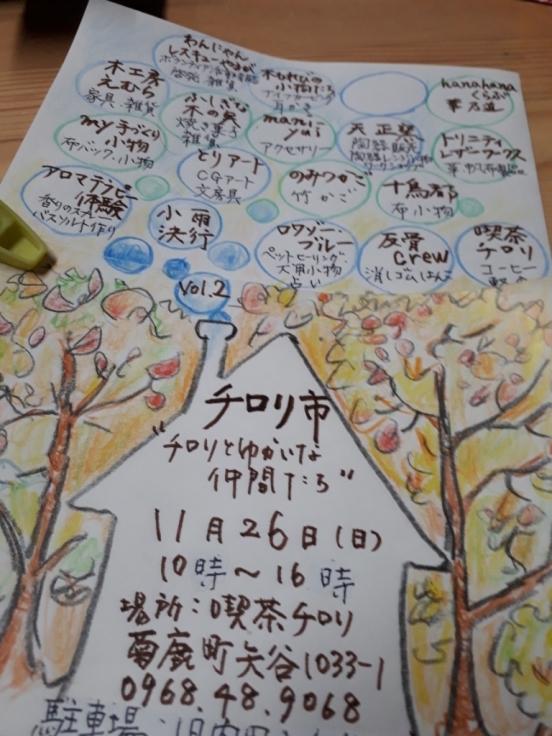 わんにゃん
レスキューやまが
啓発 雑貨
木もれびの
小物たち
hanahana
くらぶ
木工房
えむら
家具 雑貨
ふしぎな
木の実
焼き菓子
雑貨
mani
yui
アクセサリー
天正窯
陶器販売
トリニティ
レザーワークス
my手づくり
小物
布バック・小物
とりアート
CGアート
文房具
のみつかご
竹かご
十鳥都
布小物
アロマテラピー
体験
香りのスプレー
バスソルト作り
小雨
決行
ロワゾー・
ブルー
ペットヒーリング
犬用小物
占い
反骨
Crew
消しゴムはんこ
喫茶
チロリ
コーヒー
Vol.2
チロリ市
"チロリとゆかいな
仲間たち"
11月26日(日)
10時～16時
場所:喫茶チロリ
菊鹿町矢谷1033-1
0968.48.9068
駐車場: